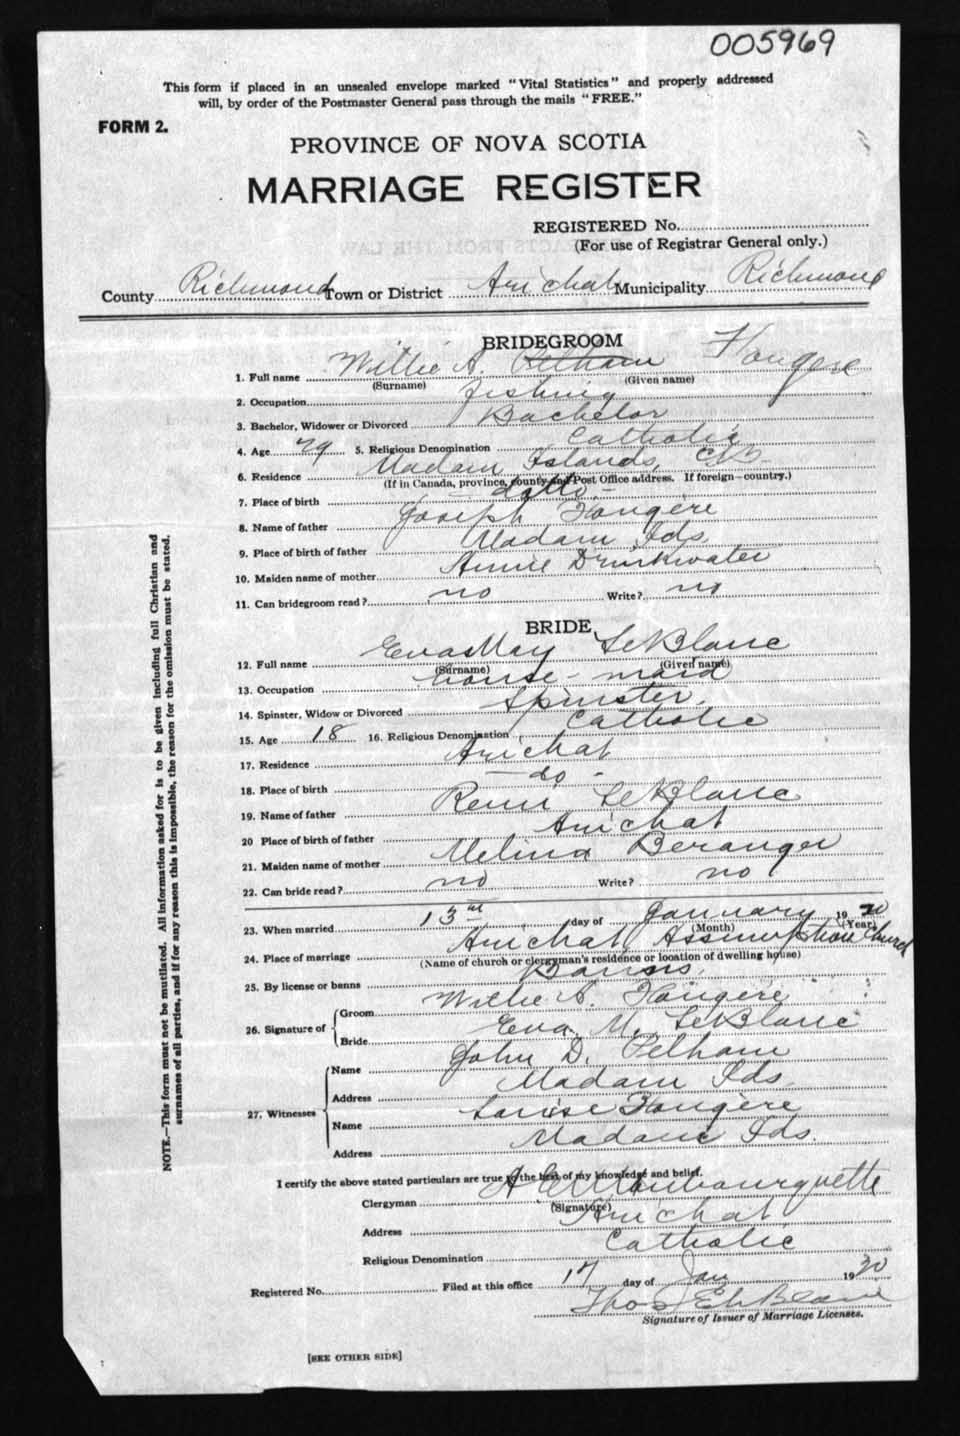 005969
This form if placed in an unsealed envelope marked "Vital Statistics" and properly addressed
will, by order of the Postmaster General pass through the mails "FREE."
FORM 2.
PROVINCE OF NOVA SCOTIA
MARRIAGE REGISTER
REGISTERED No.
(For use of Registrar General only.)
County Richmond Town or District Arichat Municipality Richmond
BRIDEGROOM
1. Full name Willie A. Pelham Fougere
(Surname) (Given name)
2. Occupation fishing
3. Bachelor, Widower or Divorced Bachelor
4. Age 29 5. Religious Denomination Catholic
6. Residence Madam Islands, C.B.
(If in Canada, province, county and Post Office address. If foreign—country.)
7. Place of birth — ditto —
8. Name of father Joseph Fougère
9. Place of birth of father Madam Ids.
10. Maiden name of mother Annie Drinkwater
11. Can bridegroom read? no Write? no
BRIDE
12. Full name Eva May LeBlanc
(Surname) (Given name)
13. Occupation house - maid
14. Spinster, Widow or Divorced Spinster,
15. Age 18 16. Religious Denomination Catholic
17. Residence Arichat
18. Place of birth — do -
19. Name of father Remi LeBlanc
20 Place of birth of father Arichat
21. Maiden name of mother Melina Beranger
22. Can bride read? no Write? no
23. When married 13 day of January 1930
(Month) (Year)
24. Place of marriage Arichat Assumption Church
(Name of church or clergyman's residence or location of dwelling house)
25. By license or banns Banns,
26. Signature of Groom Willie A. Fougère
Bride Eva. M. LeBlanc
27. Witnesses Name John D. Pelham
Address Madam Ids,
Name Louise Fougère
Address Madame Ids.
I certify the above stated particulars are true to the best of my knowledge and belief.
Clergyman Mombourquette
(Signature)
Address Arichat
Religious Denomination Catholic
Registered No. Filed at this office 17 day of Jan 1930
Thos LeBlanc
Signature of Issuer of Marriage Licenses.
[SEE OTHER SIDE]
NOTE.—This form must not be mutilated. All information asked for is to be given including full Christian and
surnames of all parties, and if for any reason this is impossible, the reason for the omission must be stated.